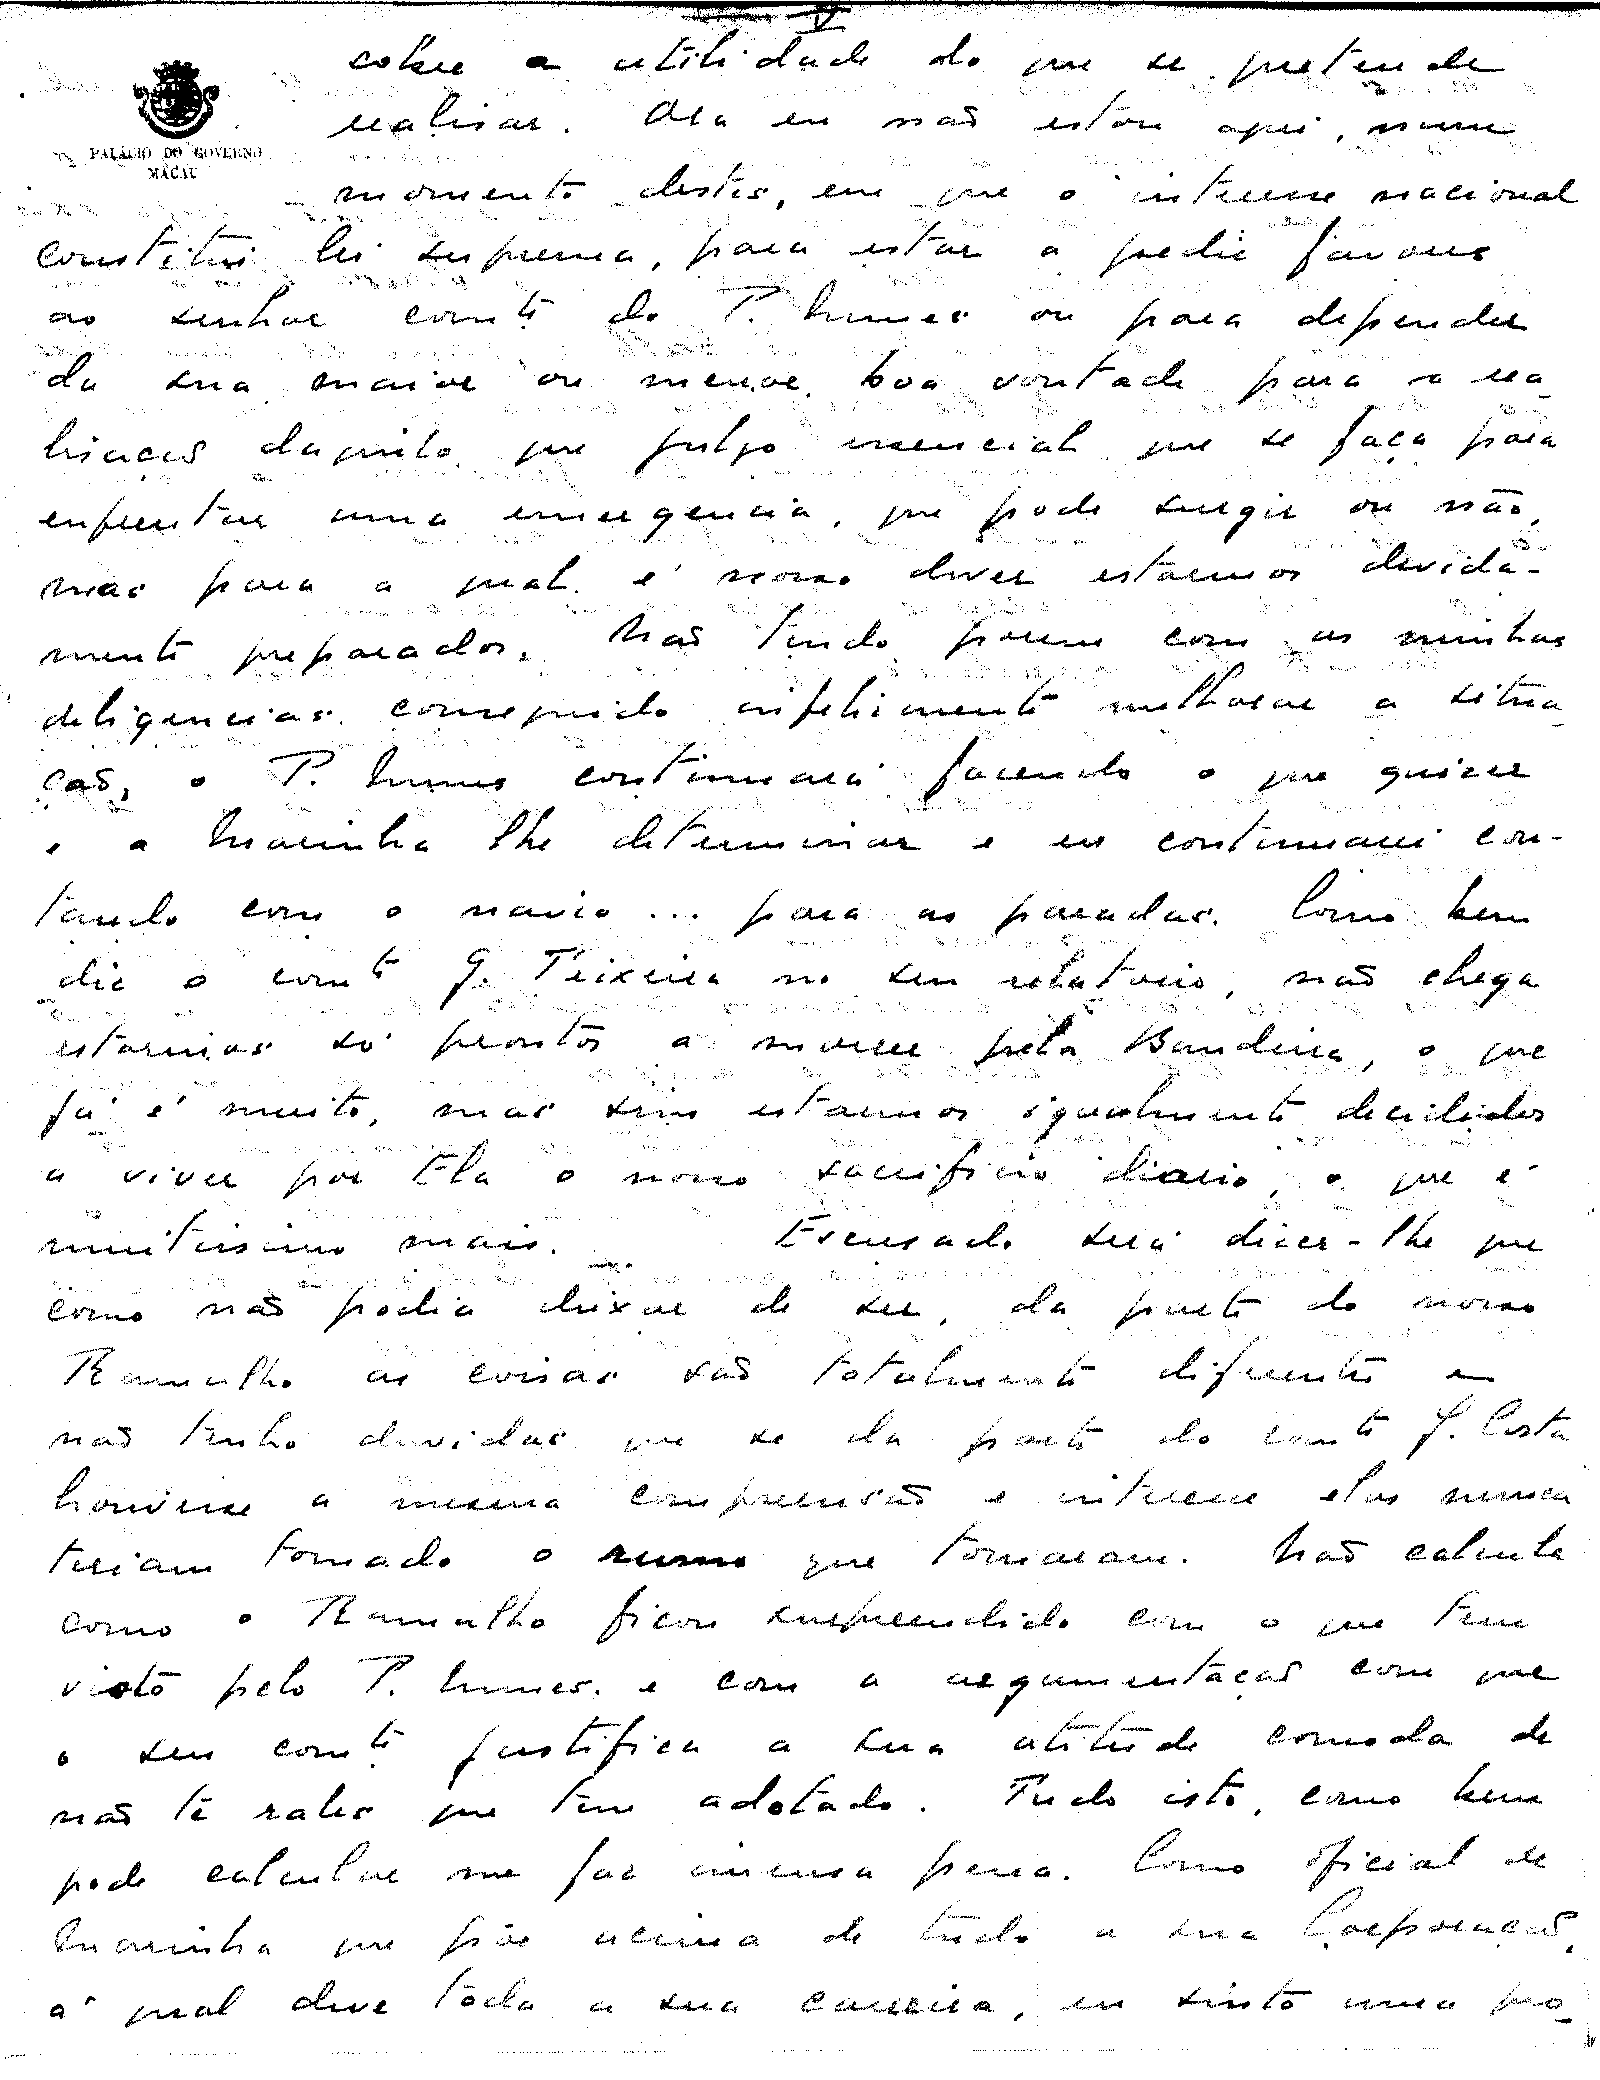 V
sobre a utilidade do que se pretende
PALÁCIO DO GOVERNO
MACAU
realisar. Ora eu não estou aqui, num
momento destes, em que o interesse nacional
constitui lei suprema, para estar a pedir favores
ao senhor comte do P. Nunes ou para depender
da sua maior ou menor boa vontade para a rea-
lisação daquilo que julgo essencial que se faça para
enfrentar uma emergencia, que pode surgir ou não,
mas para a qual é nosso dever estarmos devida-
mente preparados. Não tendo porem com as minhas
deligencias conseguido infelismente melhorar a situa-
ção, o P. Nunes continuará fazendo o que quizer
e a Marinha lhe determinar e eu continuarei con-
tando com o navio ... para as paradas. Como bem
diz o comte G. Teixeira no seu relatorio, não chega
estarmos só prontos a morrer pela Bandeira, o que
já é muito, mas sim estarmos igualmente decididos
a viver por Ela o nosso sacrificio diario, o que é
muitissimo mais. Escusado será dizer-lhe que
como não podia deixar de ser, da parte do nosso
Ramalho as coisas são totalmente diferentes e
não tenho duvidas que se da parte do comte J. Costa
houvesse a mesma compreensão e interesse elas nunca
teriam tomado o rumo que tomaram. Não calcula
como o Ramalho ficou surpreendido com o que tem
visto pelo P. Nunes e com a argumentação com que
o seu comte justifica a sua atitude comoda de
não te rales que tem adotado. Tudo isto, como bem
pode calcular me faz imensa pena. Como oficial de
Marinha que põe acima de tudo a sua Corporação,
á qual deve toda a sua carreira, eu sinto uma pro-